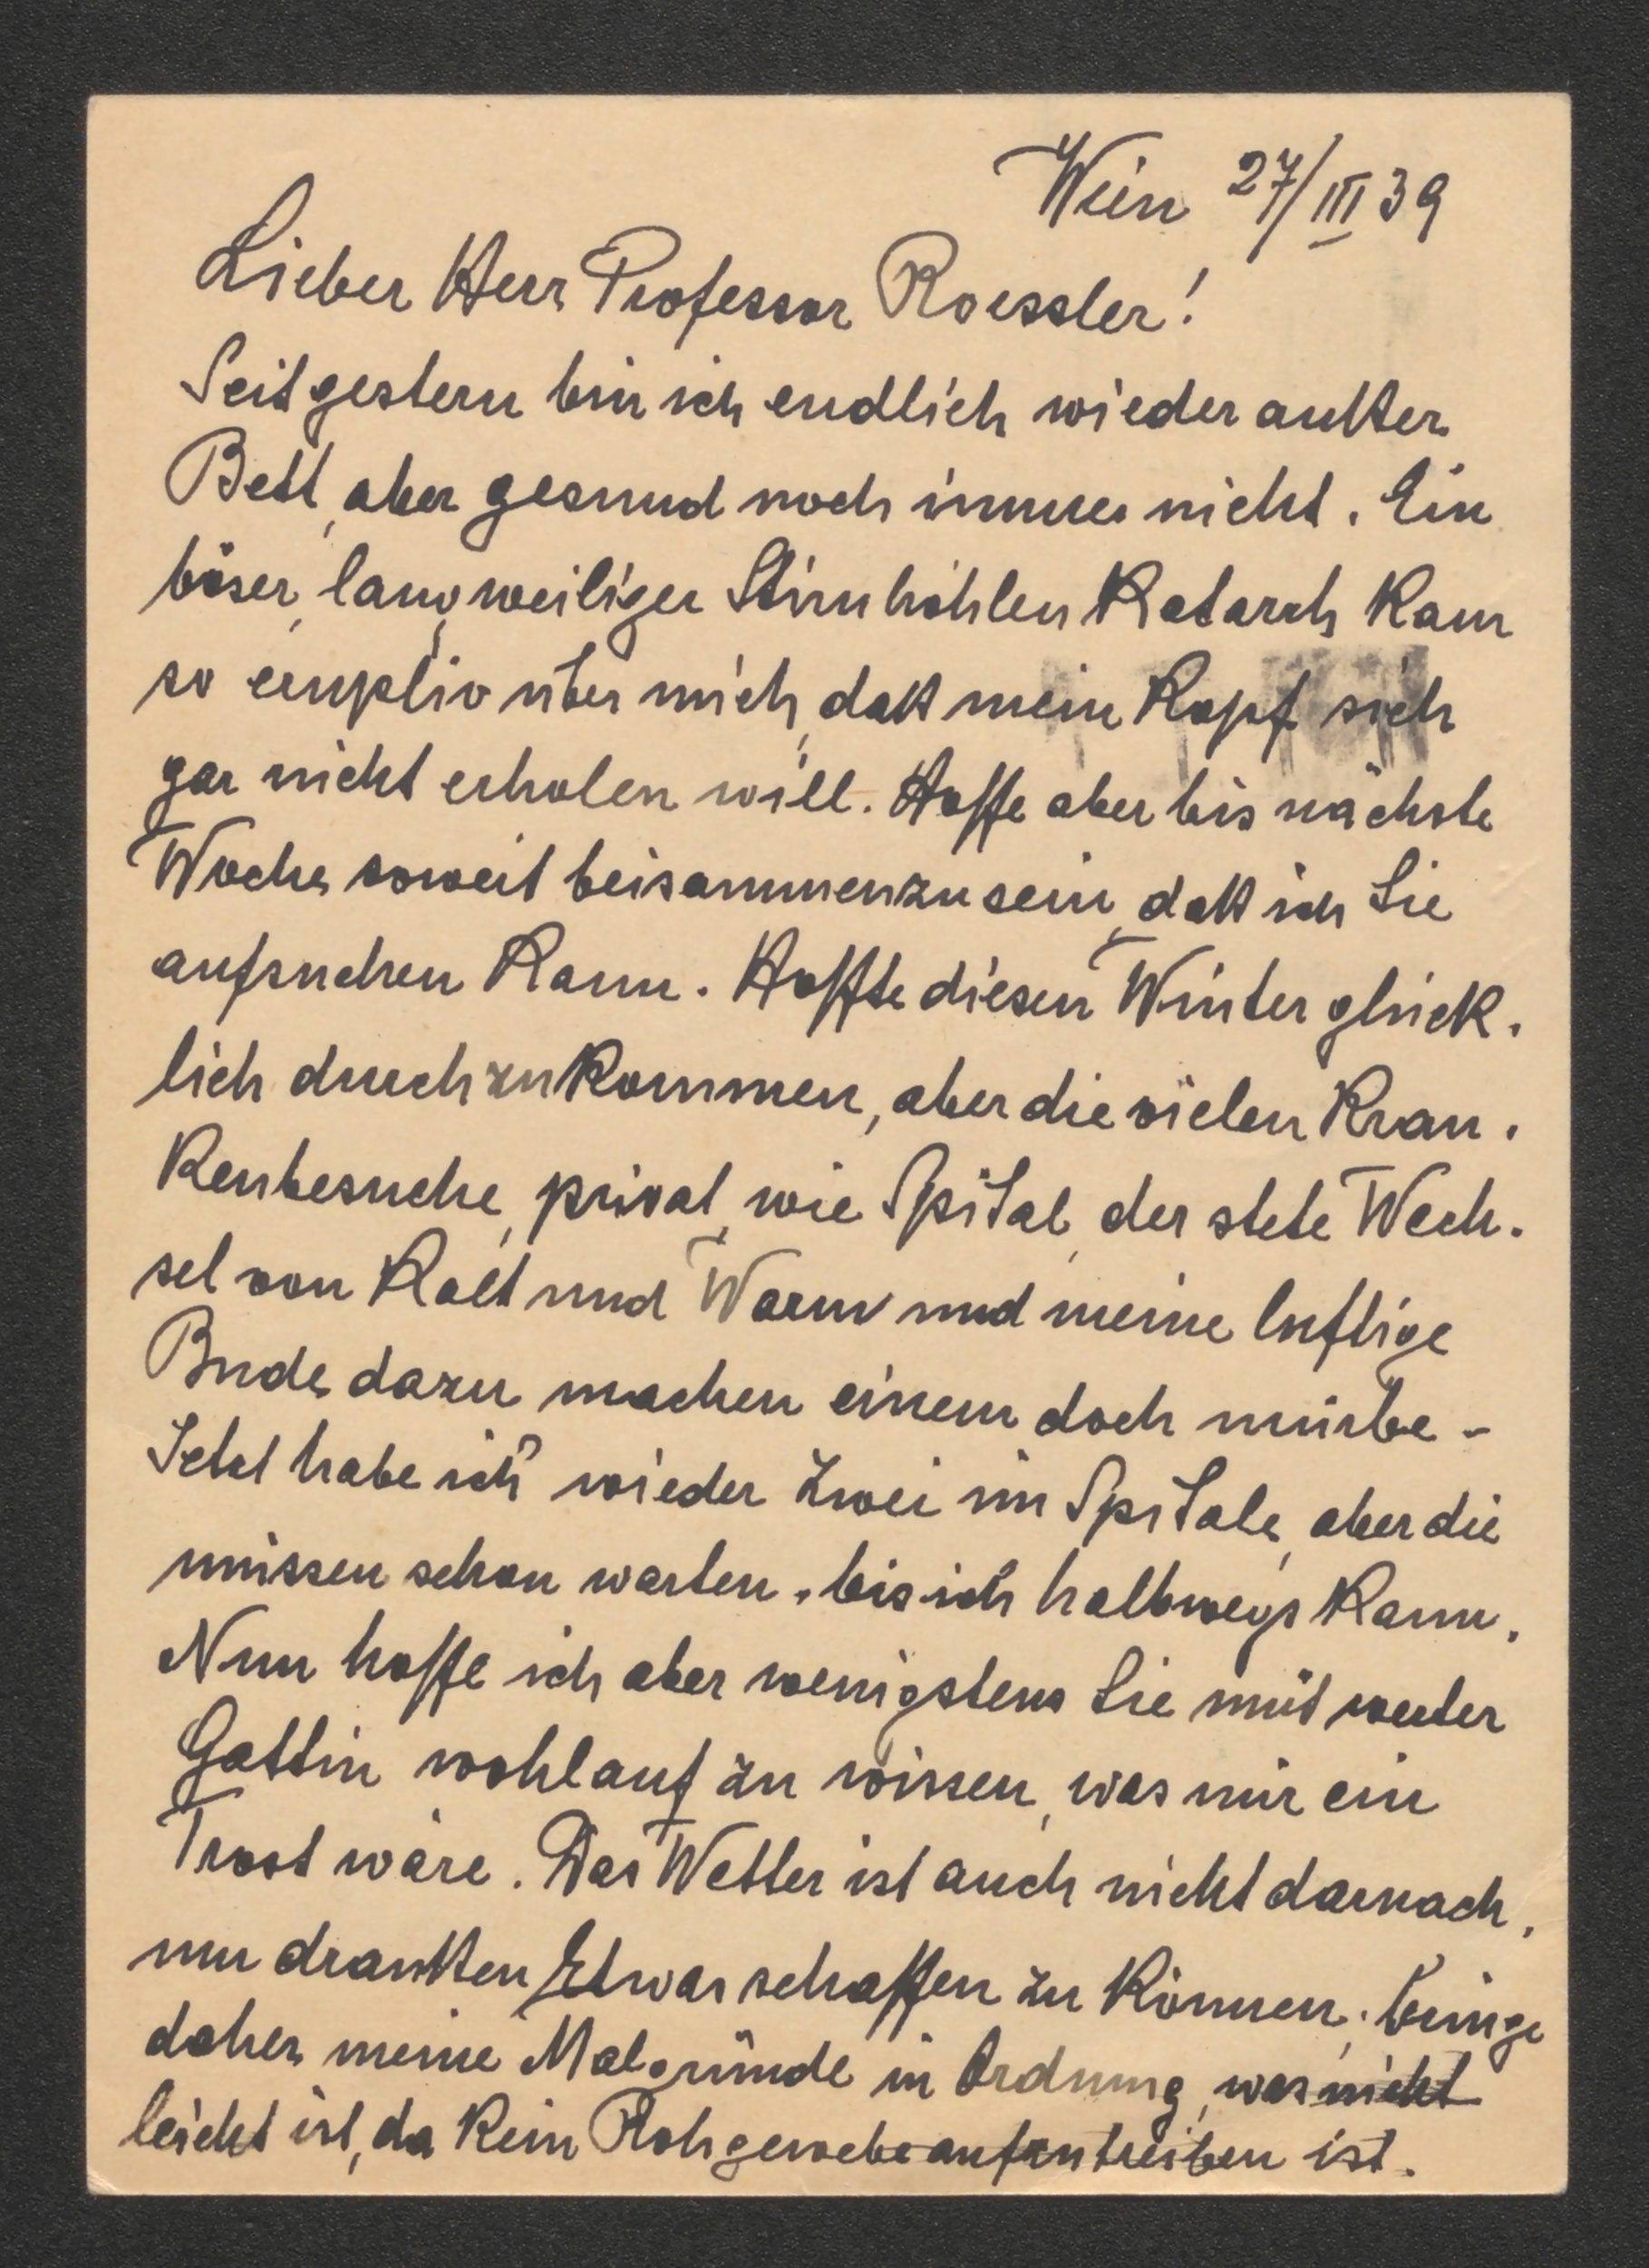 Wien 27/III 39
Lieber Herr Professor Roessler!
Seit gestern bin ich endlich wieder außer
Bett, aber gesund noch immer nicht. Ein
böser, langweiliger Stirnhöhlen Katarrh kam
so eruptiv über mich, daß mein Kopf sich
gar nicht erholen will. Hoffe aber bis nächste
Woche soweit beisammenzusein, daß ich Sie
aufsuchen kann. Hoffte diesen Winter glück-
lich durchzukommen, aber die vielen Kran-
kenbesuche, privat, wie Spital, der stete Wech-
sel von Kalt und Warm und meine luftige
Bude dazu machen einem doch mürbe -
Jetzt habe ich wieder zwei im Spitale, aber die
müssen schon warten, bis ich halbwegs kann.
Nun hoffe ich aber wenigstens Sie mit werter
Gattin wohlauf zu wissen, was mir ein
Trost wäre. Das Wetter ist auch nicht darnach,
um draußen Etwas schaffen zu können; bringe
daher meine Malgründe in Ordnung, was nicht
leicht ist, da kein Rohgewebe aufzutreiben ist.